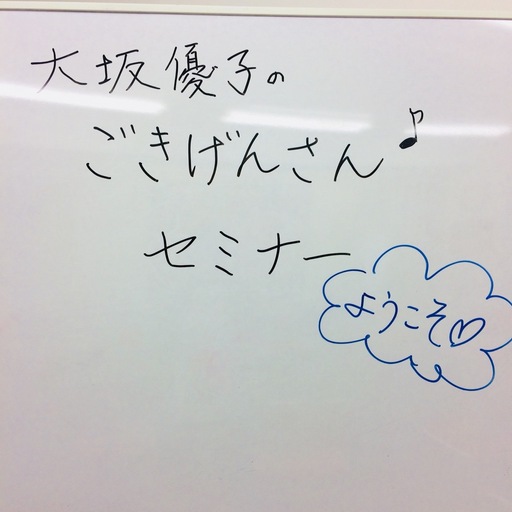 大坂優子の
ごきげんさん♪
セミナー
ようこそ♡